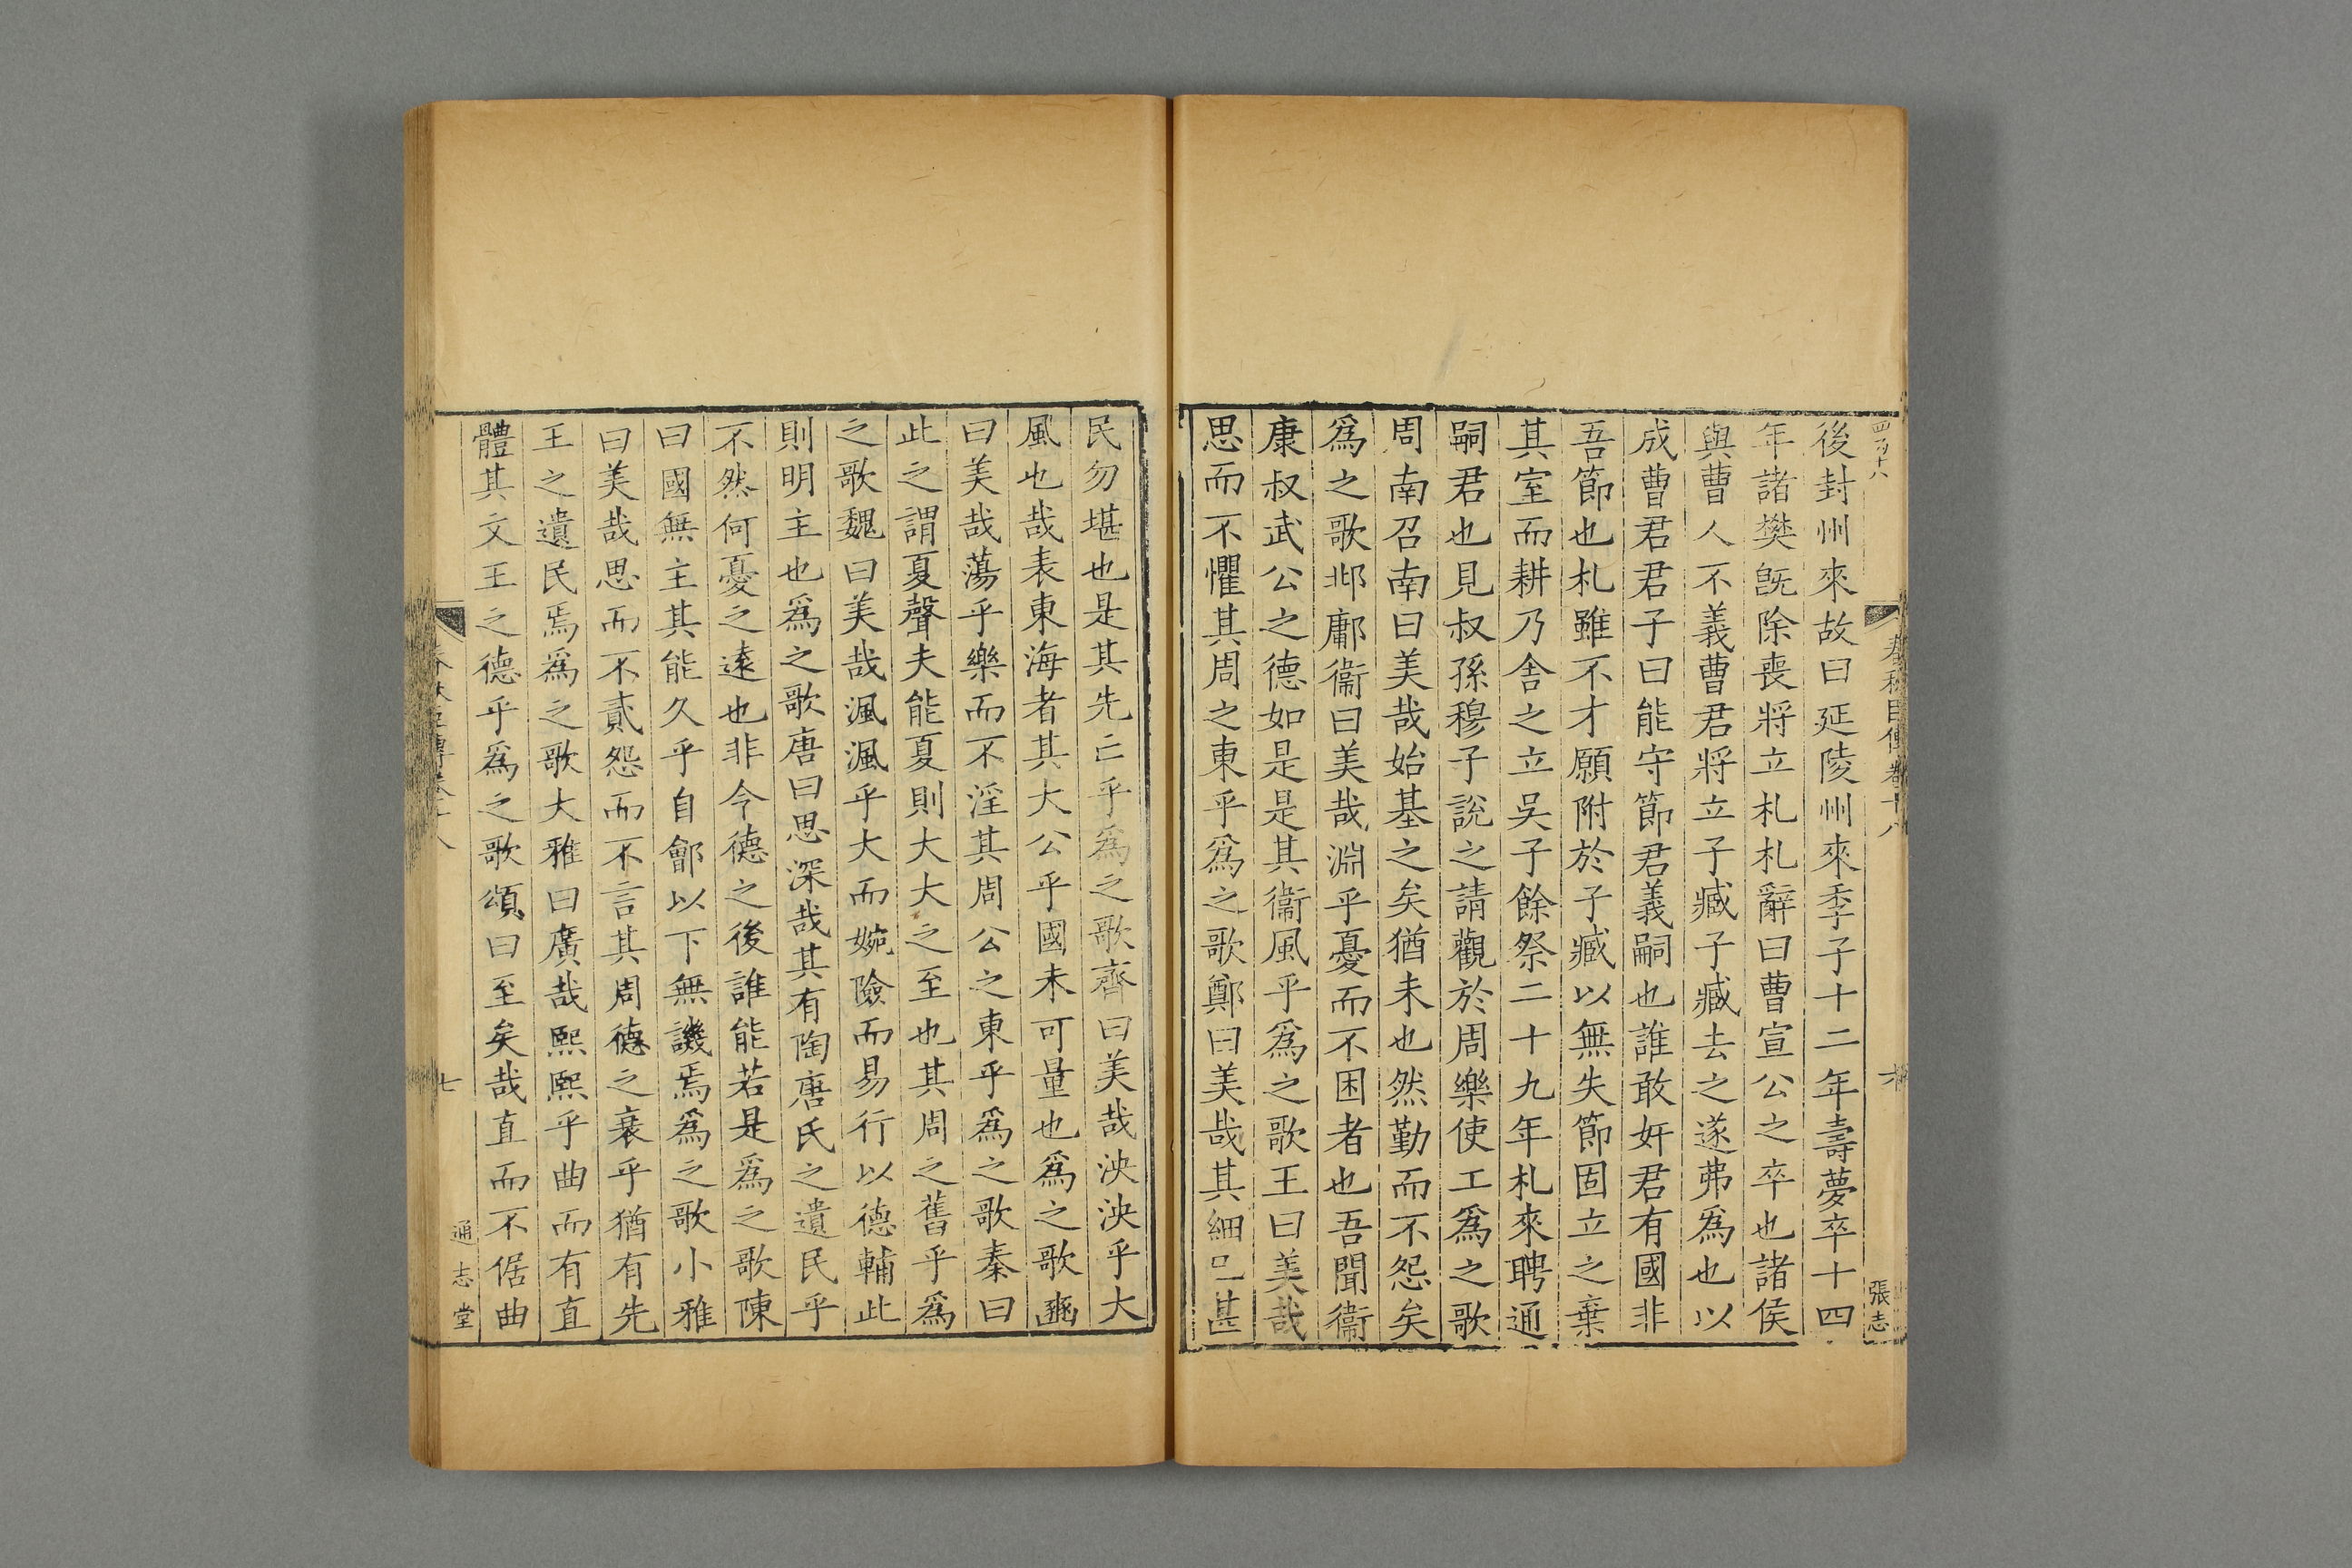 後封州來故曰延陵州來季子十二年壽夢卒十四
年諸樊旣除喪將立札札辭曰曹宣公之卒也諸侯
與曹人不義曹君將立子臧子臧去之遂弗爲也以
成曹君君子曰能守節君義嗣也誰敢奸君有國非
吾節也札雖不才願附於子臧以無失節固立之棄
其室而耕乃舍之立吳子餘祭二十九年札來聘通
嗣君也見叔孫穆子說之請觀於周樂使工爲之歌
周南召南曰美哉始基之矣猶未也然勤而不怨矣
爲之歌邶鄘衞曰美哉淵乎憂而不困者也吾聞衞
康叔武公之德如是是其衞風乎爲之歌王曰美哉
思而不懼其周之東乎爲之歌鄭曰美哉其細已甚
春秋臣傳卷十八
張志
民勿堪也是其先亡乎爲之歌齊曰美哉泱泱乎大
風也哉表東海者其大公乎國未可量也爲之歌豳
曰美哉蕩乎樂而不淫其周公之東乎爲之歌秦曰
此之謂夏聲夫能夏則大大之至也其周之舊乎爲
之歌魏曰美哉渢渢乎大而婉險而易行以德輔此
則明主也爲之歌唐曰思深哉其有陶唐氏之遺民乎
不然何憂之遠也非令德之後誰能若是爲之歌陳
曰國無主其能久乎自鄶以下無譏焉爲之歌小雅
曰美哉思而不貳怨而不言其周德之衰乎猶有先
王之遺民焉爲之歌大雅曰廣哉熙熙乎曲而有直
體其文王之德乎爲之歌頌曰至矣哉直而不倨曲
七
通志堂